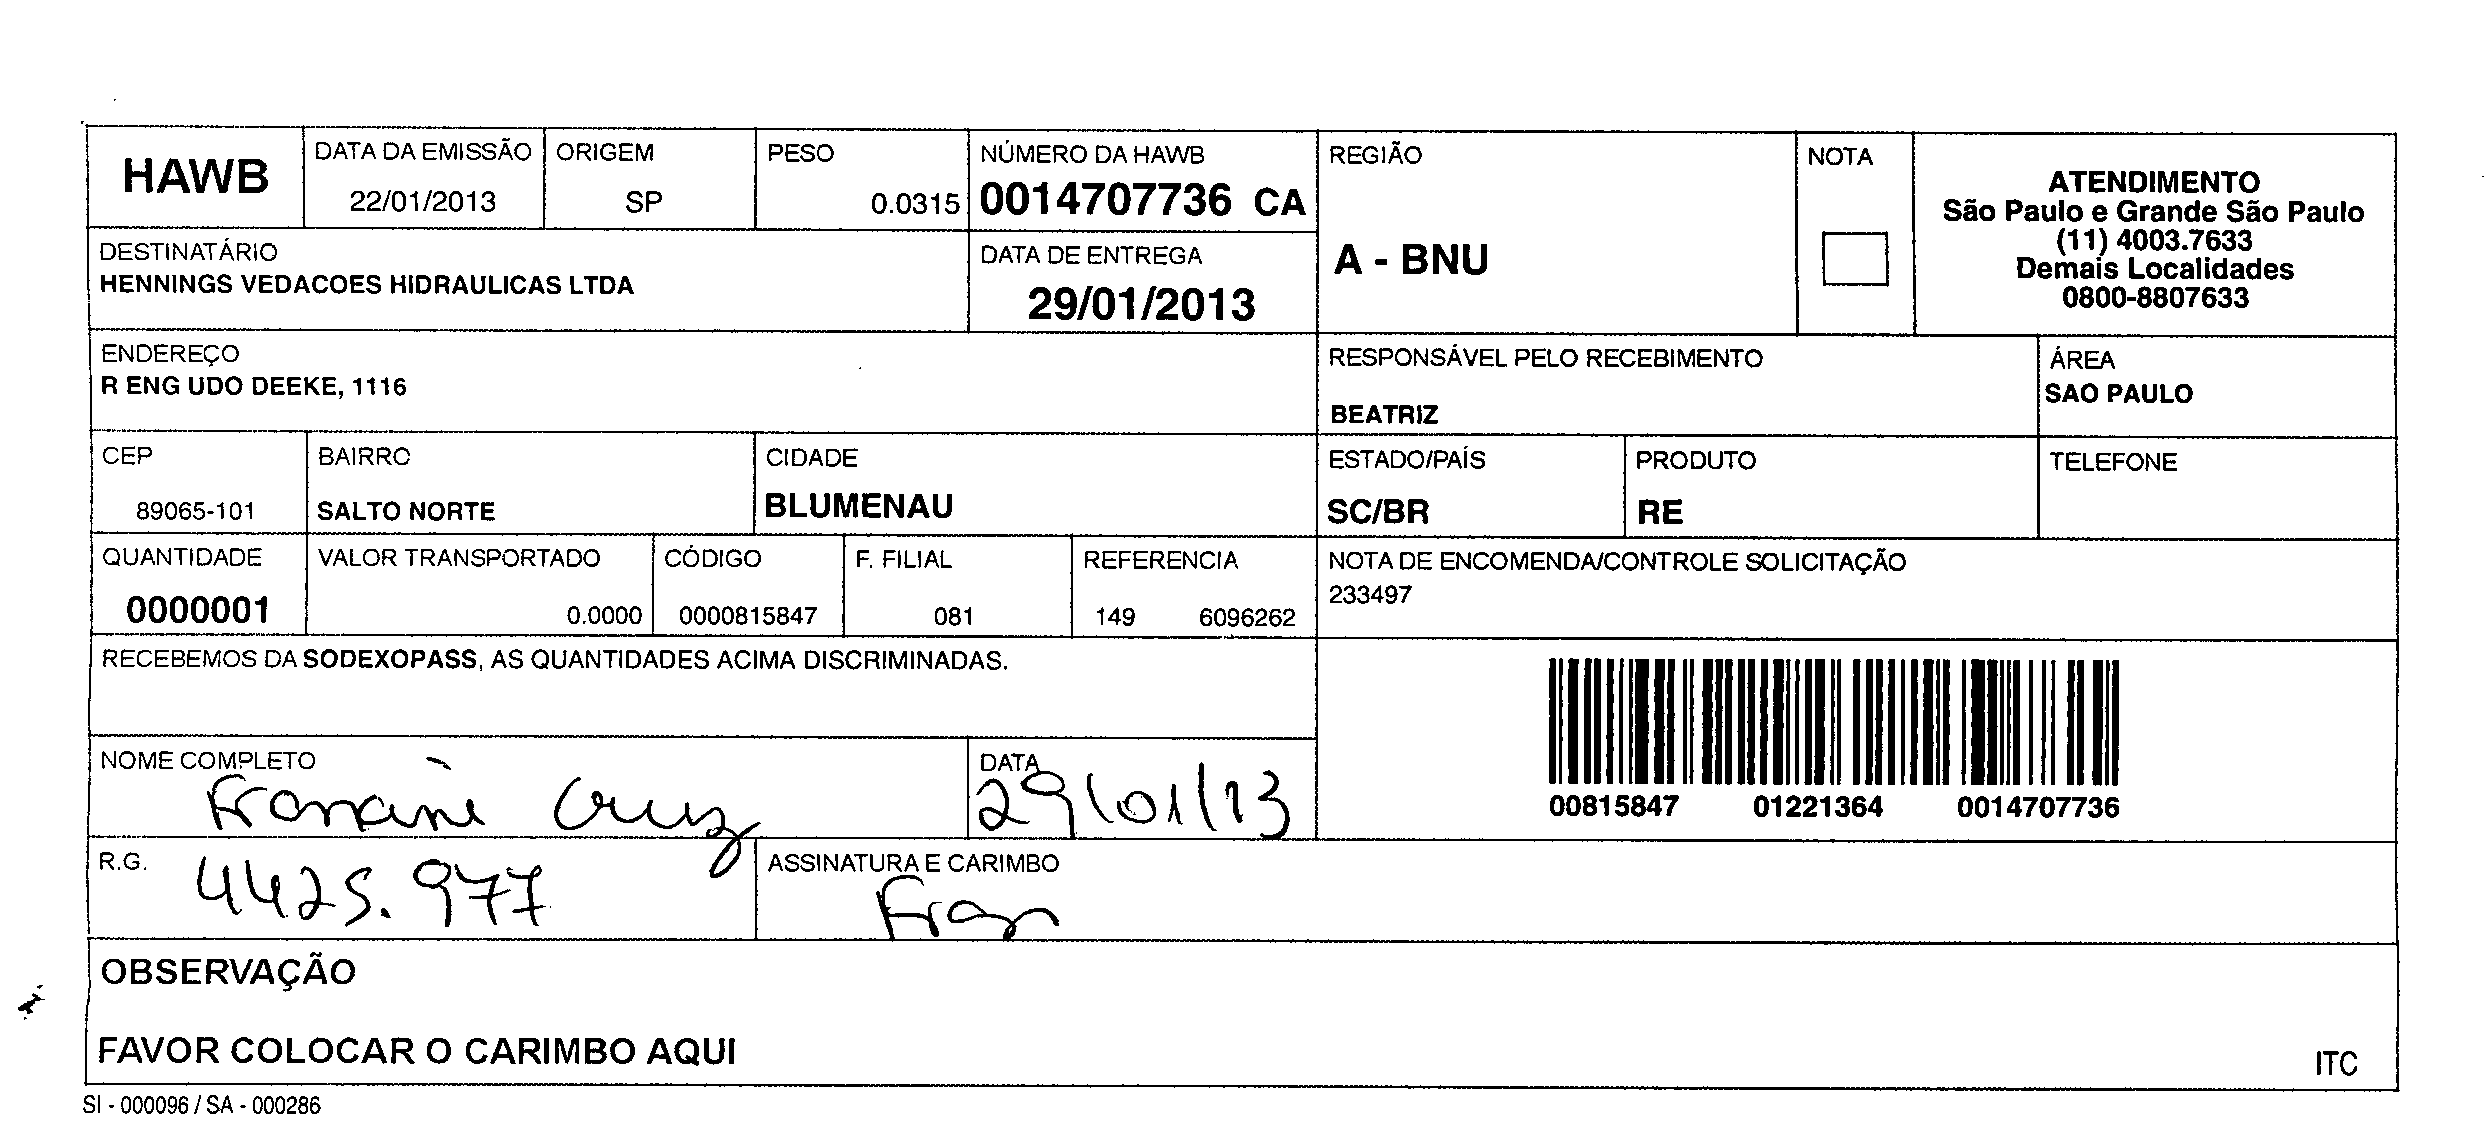 HAWB
DATA DA EMISSÃO
22/01/2013
ORIGEM
SP
PESO
0.0315
NÚMERO DA HAWB
0014707736 CA
REGIÃO
A - BNU
NOTA
ATENDIMENTO
São Paulo e Grande São Paulo
(11) 4003.7633
Demais Localidades
0800-8807633
DESTINATÁRIO
HENNINGS VEDACOES HIDRAULICAS LTDA
DATA DE ENTREGA
29/01/2013
ENDEREÇO
R ENG UDO DEEKE, 1116
RESPONSÁVEL PELO RECEBIMENTO
BEATRIZ
ÁREA
SAO PAULO
CEP
89065-101
BAIRRO
SALTO NORTE
CIDADE
BLUMENAU
ESTADO/PAÍS
SC/BR
PRODUTO
RE
TELEFONE
QUANTIDADE
0000001
VALOR TRANSPORTADO
0.0000
CÓDIGO
0000815847
F. FILIAL
081
REFERENCIA
149 6096262
NOTA DE ENCOMENDA/CONTROLE SOLICITAÇÃO
233497
RECEBEMOS DA SODEXOPASS, AS QUANTIDADES ACIMA DISCRIMINADAS.
00815847 01221364 0014707736
NOME COMPLETO
Francini Cruz
DATA
29/01/13
R.G.
4425.977
ASSINATURA E CARIMBO
Fran
OBSERVAÇÃO
FAVOR COLOCAR O CARIMBO AQUI
ITC
SI - 000096 / SA - 000286